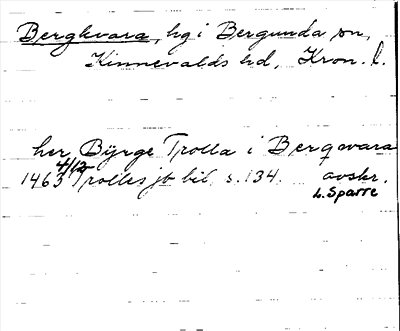 Bergkvara, hg i Bergunda sn,
Kinnevalds hd, Kron. l.
her Byrge Trolla i Bergqvara
1463 4/12 Trolles jb bil. s. 134. avskr.
L. Sparre